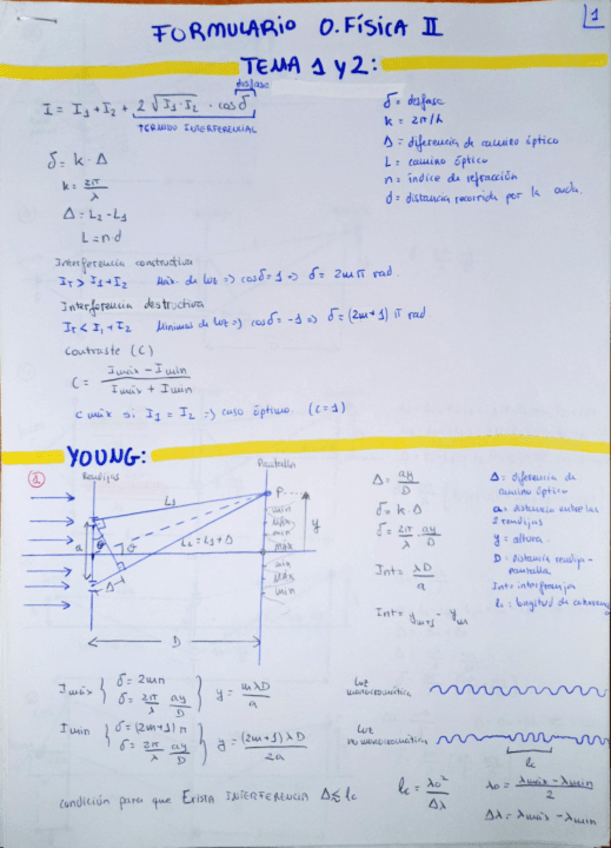 1
FORMULARIO O.FÍSICA II
TEMA 1 y 2:
desfase
I = I₁ + I₂ + 2 √(I₁·I₂) · cos δ
TÉRMINO INTERFERENCIAL
δ = desfase
k = 2π/λ
Δ = diferencia de camino óptico
L = camino óptico
n = índice de refracción
d = distancia recorrida por la onda.
δ = k · Δ
k = 2π/λ
Δ = L₂ - L₁
L = n·d
Interferencia constructiva
I_T > I₁ + I₂ Máx. de luz => cos δ = 1 => δ = 2mπ rad.
Interferencia destructiva
I_T < I₁ + I₂ Mínimos de luz => cos δ = -1 => δ = (2m+1) π rad
Contraste (C)
C = (Imáx - Imin)/(Imáx + Imin)
C máx si I₁ = I₂ => caso óptimo. (C=1)
YOUNG:
1
Rendijas
Pantalla
L₁
P
L₂ = L₁ + Δ
y
a
θ
θ
Δ
min
Máx
min
MÁX
min
MÁX
min
D
Δ = ay/D
δ = k · Δ
δ = 2π/λ · ay/D
Int = λD/a
Int = y_m+1 - y_m
Δ = diferencia de
camino óptico
a = distancia entre las
2 rendijas
y = altura
D = distancia rendija-
pantalla
Int = interfranja
lc : longitud de coherencia
Imáx { δ = 2mπ
δ = 2π/λ ay/D } y = mλD/a
Imin { δ = (2m+1) π
δ = 2π/λ ay/D } y = (2m+1) λD/2a
Luz
monocromática
Luz
no monocromática
lc
Condición para que EXISTA INTERFERENCIA Δ ≤ lc
lc = λo²/Δλ
λo = (λmáx - λmin)/2
Δλ = λmáx - λmin